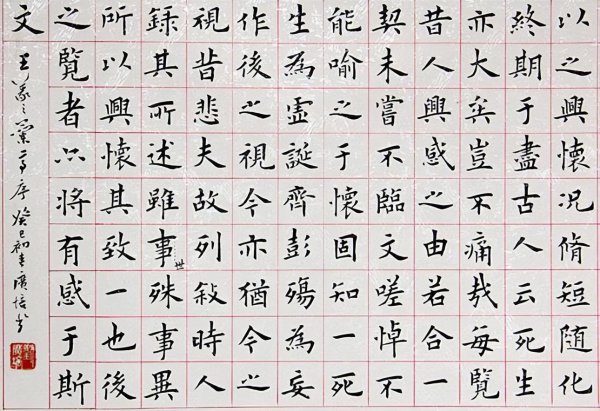 以之興懷況脩短隨化
終期于盡古人云死生
亦大矣豈不痛哉每覽
昔人興感之由若合一
契未嘗不臨文嗟悼不
能喻之于懷固知一死
生為虛誕齊彭殤為妄
作後之視今亦猶今之
視昔悲夫故列敍時人
錄其所述雖世事殊事異
所以興懷其致一也後
之覽者亦將有感于斯
文
王羲之蘭亭序癸巳初